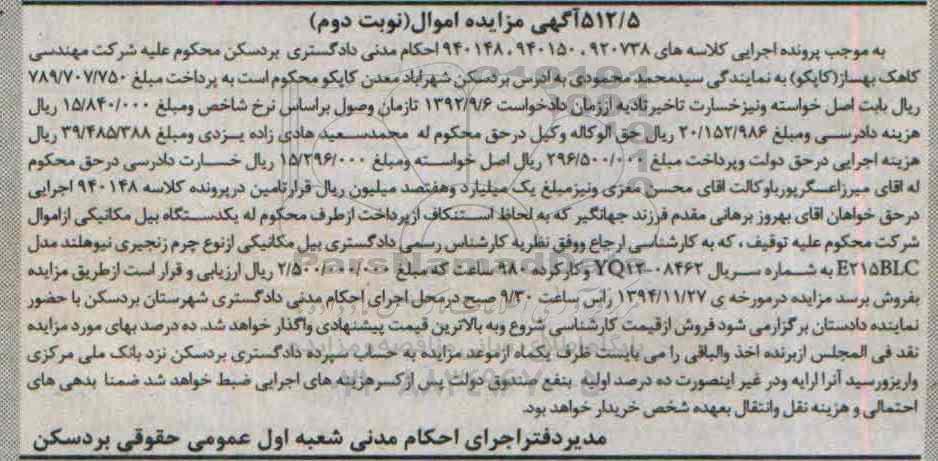 ۵۱۲/۵آگهی مزایده اموال(نوبت دوم)
به موجب پرونده اجرایی کلاسه های ۹۲۰۷۳۸ ، ۹۴۰۱۵۰ ، ۹۴۰۱۴۸ احکام مدنی دادگستری بردسکن محکوم علیه شرکت مهندسی
کاهک بهساز(کاپکو) به نمایندگی سیدمحمد محمودی به ادرس بردسکن شهراباد معدن کاپکو محکوم است به پرداخت مبلغ ۷۸۹/۷۰۷/۷۵۰
ریال بابت اصل خواسته ونیزخسارت تاخیرتادیه اززمان دادخواست ۱۳۹۲/۹/۶ تازمان وصول براساس نرخ شاخص ومبلغ ۱۵/۸۴۰/۰۰۰ ریال
هزینه دادرسی ومبلغ ۲۰/۱۵۲/۹۸۶ ریال حق الوکاله وکیل درحق محکوم له محمدسعید هادی زاده یزدی ومبلغ ۳۹/۴۸۵/۳۸۸ ریال
هزینه اجرایی درحق دولت وپرداخت مبلغ ۲۹۶/۵۰۰/۰۰۰ ریال اصل خواسته ومبلغ ۱۵/۲۹۶/۰۰۰ ریال خسارت دادرسی درحق محکوم
له اقای میرزاعسگرپورباوکالت اقای محسن مغزی ونیزمبلغ یک میلیارد وهفتصد میلیون ریال قرارتامین درپرونده کلاسه ۹۴۰۱۴۸ اجرایی
درحق خواهان اقای بهروز برهانی مقدم فرزند جهانگیر که به لحاظ استنکاف ازپرداخت ازطرف محکوم له یکدستگاه بیل مکانیکی ازاموال
شرکت محکوم علیه توقیف ، که به کارشناسی ارجاع ووفق نظریه کارشناس رسمی دادگستری بیل مکانیکی ازنوع چرم زنجیری نیوهلند مدل
E۲۱۵BLC به شماره سریال YQ۱۲-۰۸۴۶۲ وکارکرده ۹۸۰ ساعت که مبلغ ۲/۵۰۰/۰۰۰/۰۰۰ ریال ارزیابی و قرار است ازطریق مزایده
بفروش برسد مزایده درمورخه ی ۱۳۹۴/۱۱/۲۷ راس ساعت ۹/۳۰ صبح درمحل اجرای احکام مدنی دادگستری شهرستان بردسکن با حضور
نماینده دادستان برگزارمی شود فروش ازقیمت کارشناسی شروع وبه بالاترین قیمت پیشنهادی واگذار خواهد شد. ده درصد بهای مورد مزایده
نقد فی المجلس ازبرنده اخذ والباقی را می بایست ظرف یکماه ازموعد مزایده به حساب سپرده دادگستری بردسکن نزد بانک ملی مرکزی
واریزورسید آنرا ارایه ودر غیر اینصورت ده درصد اولیه بنفع صندوق دولت پس ازکسرهزینه های اجرایی ضبط خواهد شد ضمنا بدهی های
احتمالی و هزینه نقل وانتقال بعهده شخص خریدار خواهد بود.
مدیردفتراجرای احکام مدنی شعبه اول عمومی حقوقی بردسکن